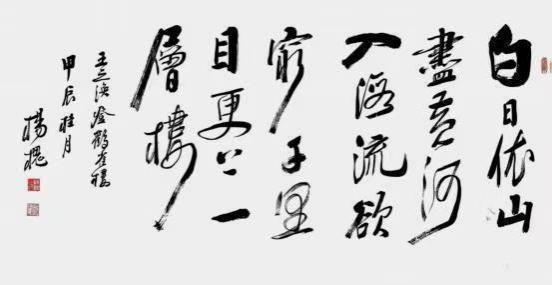 白日依山
盡黄河
入海流欲
窮千里
目更上一
層樓
王之渙登鸛雀樓
甲辰桂月
楊槐